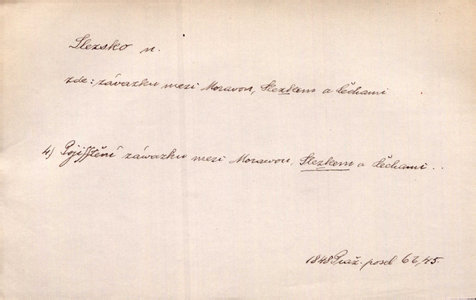 Slezsko n.
zde: závazku mezi Moravou, Slezkem a Čechami
4) Pojištění závazku mezi Moravou, Slezkem a Čechami . .
1848 Praž. posel 62/45.